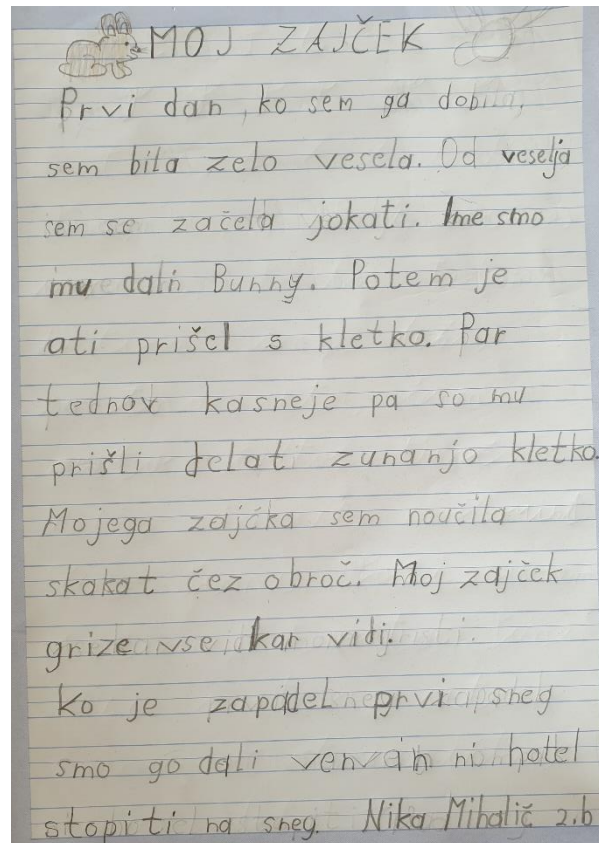 MOJ ZAJČEK
Prvi dan, ko sem ga dobila,
sem bila zelo vesela. Od veselja
sem se začela jokati. Ime smo
mu dali Bunny. Potem je
ati prišel s kletko. Par
tednov kasneje pa so mu
prišli delat zunanjo kletko.
Mojega zajčka sem noučila
skakat čez obroč. Moj zajček
grize vse kar vidi.
Ko je zapadel prvi sneg
smo go dali ven ni hotel
stopiti na sneg. Nika Mihalič 2.b